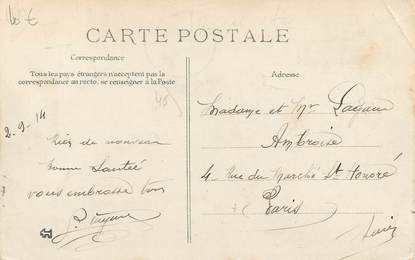 10€
CARTE POSTALE
Correspondance
Tous les pays étrangers n'acceptent pas la
correspondance au recto, se renseigner à la Poste
45
2.9.14
Rien de nouveau
bonne Santée
vous embrasse tous
Adresse
Madame et Mr
Ambroise
4 Rue du Marché St Honoré
Paris